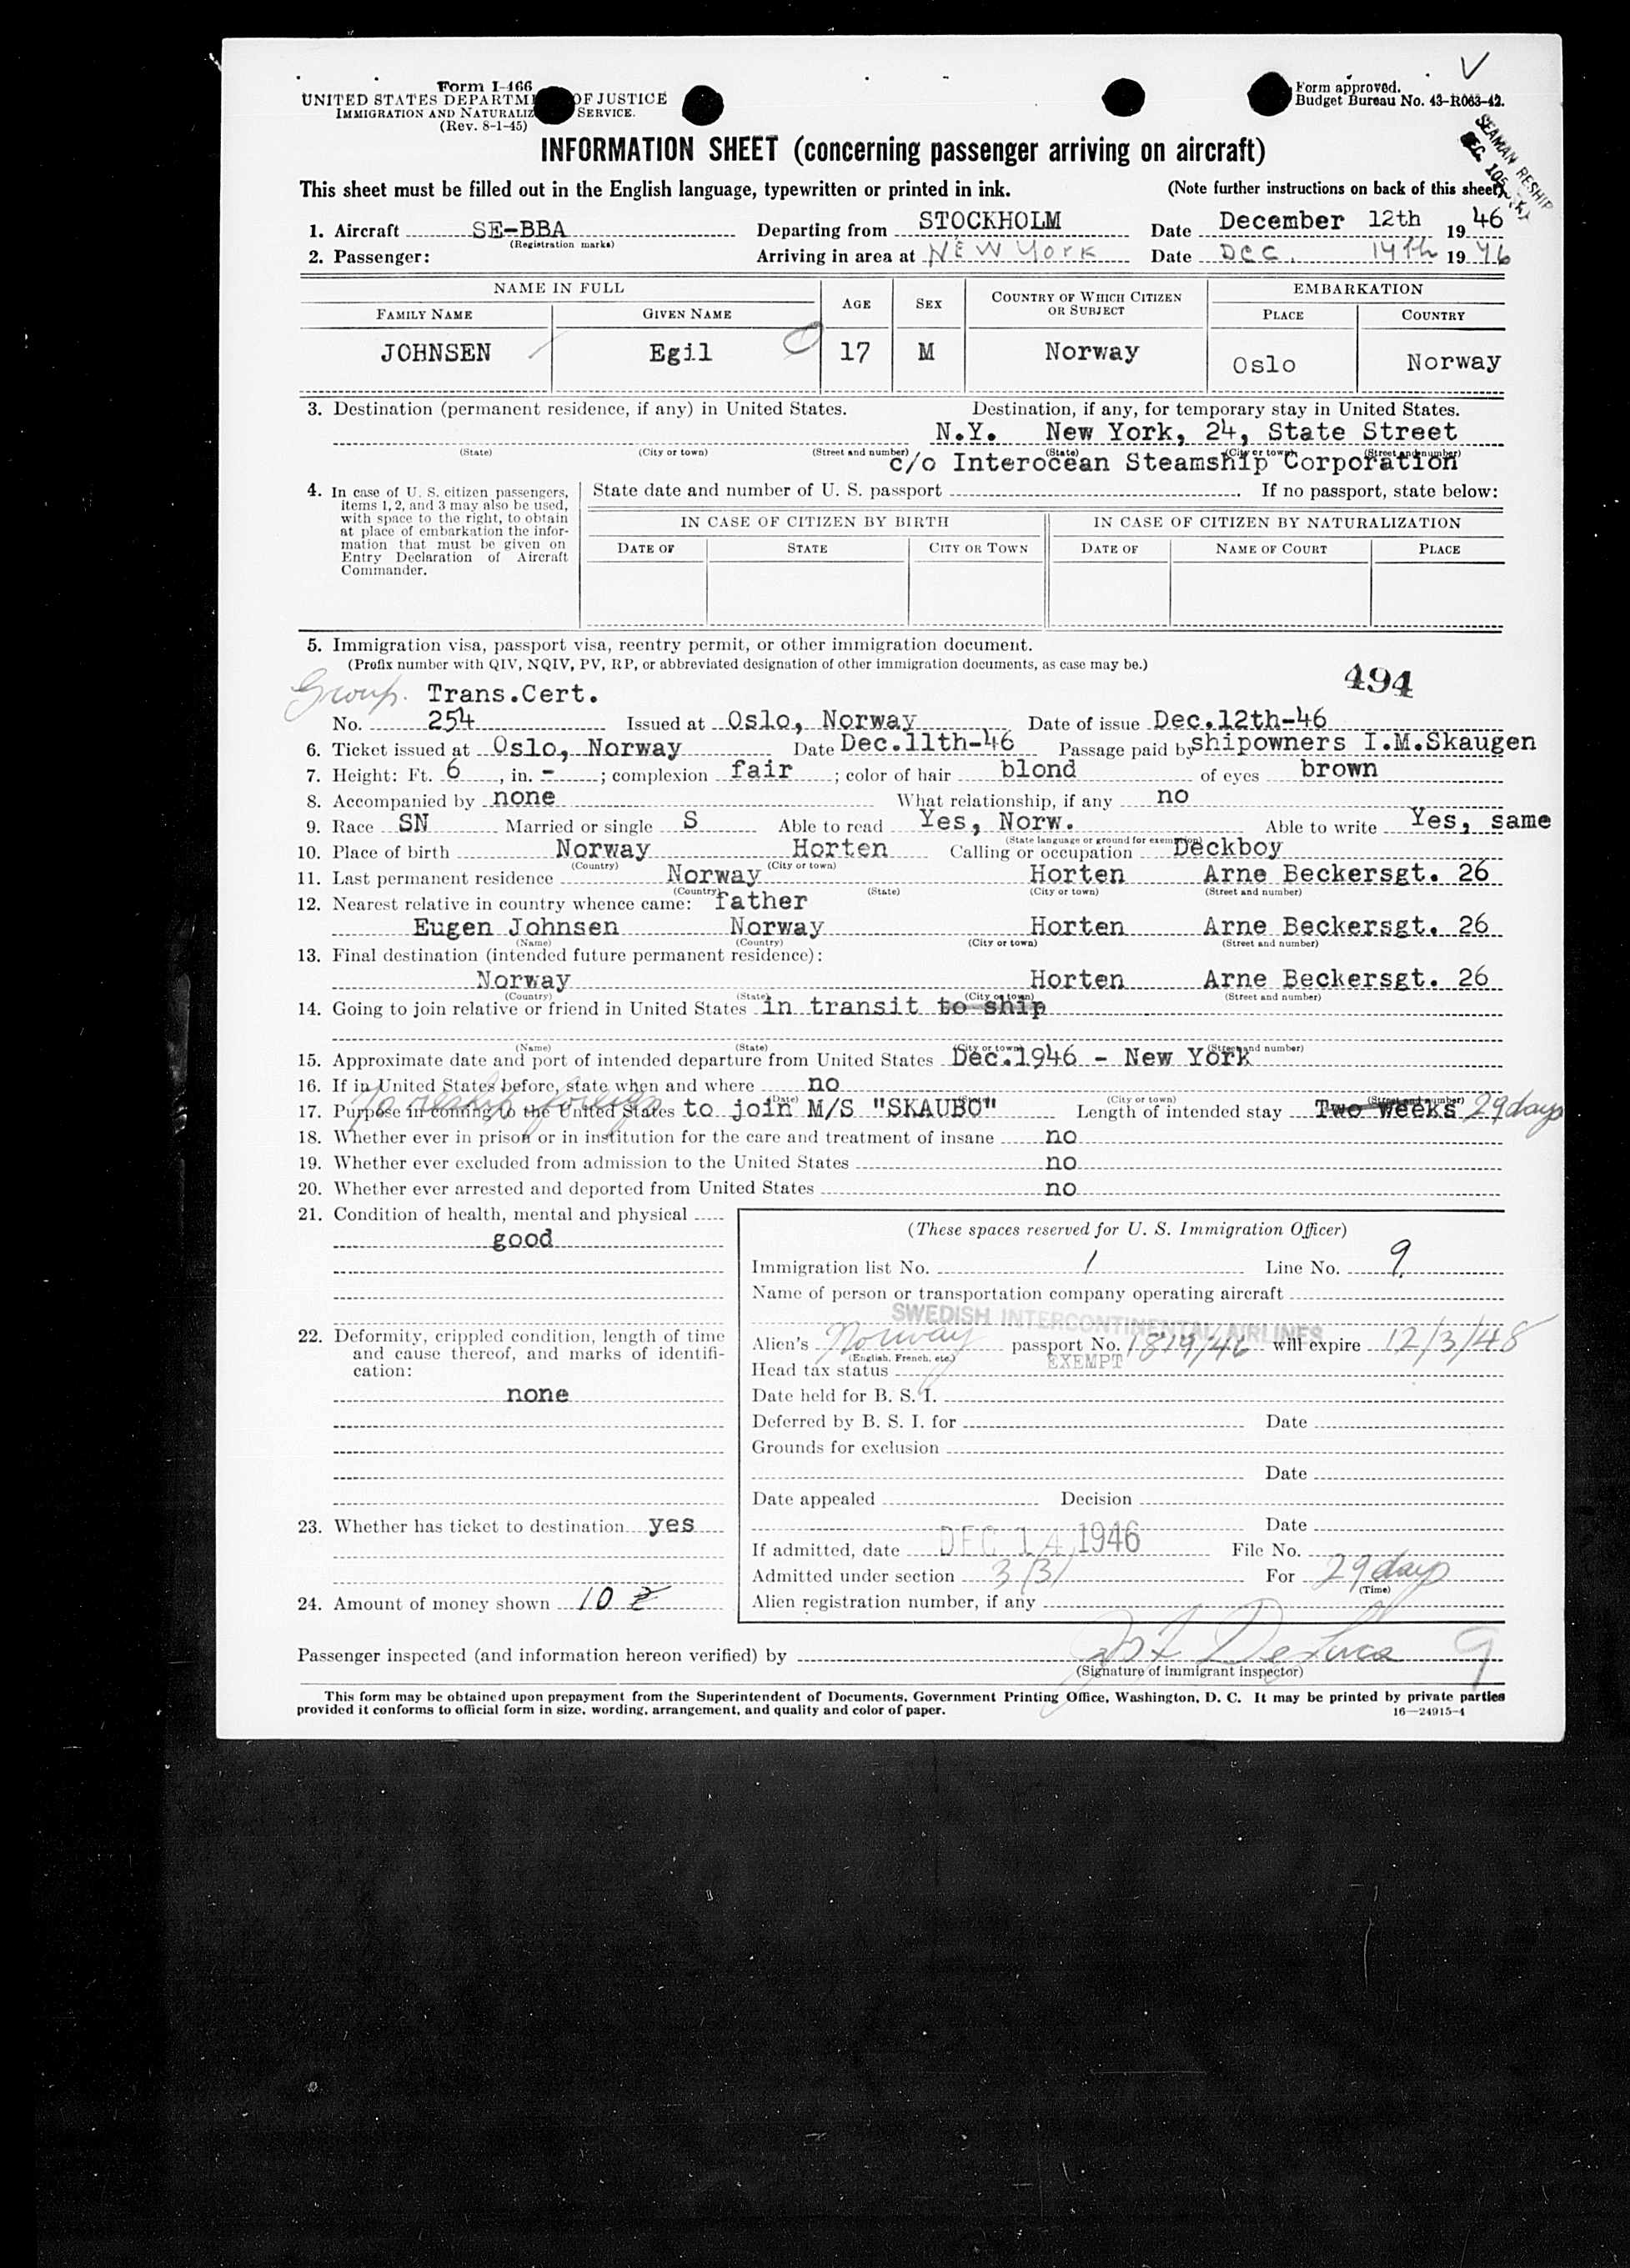 Form I-466
UNITED STATES DEPARTMENT OF JUSTICE
IMMIGRATION AND NATURALIZ SERVICE.
(Rev. 8-1-45)
Form approved.
Budget Bureau No. 43-R063-42.
SEAMAN RESHIP
INFORMATION SHEET (concerning passenger arriving on aircraft)
This sheet must be filled out in the English language, typewritten or printed in ink. (Note further instructions on back of this sheet)
1. Aircraft SE-BBA Departing from STOCKHOLM Date December 12th 1946
(Registration marks)
2. Passenger: Arriving in area at NEW YORK Date DEC. 14th 1946
NAME IN FULL AGE SEX COUNTRY OF WHICH CITIZEN OR SUBJECT EMBARKATION
FAMILY NAME GIVEN NAME PLACE COUNTRY
JOHNSEN Egil 17 M Norway Oslo Norway
3. Destination (permanent residence, if any) in United States. Destination, if any, for temporary stay in United States.
N.Y. New York, 24, State Street
(State) (City or town) (Street and number) (State) (City or town) (Street and number)
c/o Interocean Steamship Corporation
4. In case of U. S. citizen passengers, items 1, 2, and 3 may also be used, with space to the right, to obtain at place of embarkation the information that must be given on Entry Declaration of Aircraft Commander.
State date and number of U. S. passport If no passport, state below:
IN CASE OF CITIZEN BY BIRTH IN CASE OF CITIZEN BY NATURALIZATION
DATE OF STATE CITY OR TOWN DATE OF NAME OF COURT PLACE
5. Immigration visa, passport visa, reentry permit, or other immigration document.
(Prefix number with QIV, NQIV, PV, RP, or abbreviated designation of other immigration documents, as case may be.)
494
Group. Trans.Cert.
No. 254 Issued at Oslo, Norway Date of issue Dec.12th-46
6. Ticket issued at Oslo, Norway Date Dec.11th-46 Passage paid by shipowners I.M.Skaugen
7. Height: Ft. 6, in. -; complexion fair; color of hair blond of eyes brown
8. Accompanied by none What relationship, if any no
9. Race SN Married or single S Able to read Yes, Norw. Able to write Yes, same
(State language or ground for exemption)
10. Place of birth Norway Horten Calling or occupation Deckboy
(Country) (City or town)
11. Last permanent residence Norway Horten Arne Beckersgt. 26
(Country) (State) (City or town) (Street and number)
12. Nearest relative in country whence came: father
Eugen Johnsen Norway Horten Arne Beckersgt. 26
(Name) (Country) (City or town) (Street and number)
13. Final destination (intended future permanent residence):
Norway Horten Arne Beckersgt. 26
(Country) (State) (City or town) (Street and number)
14. Going to join relative or friend in United States in transit to ship
(Name) (State) (City or town) (Street and number)
15. Approximate date and port of intended departure from United States Dec.1946 - New York
16. If in United States before, state when and where no
(Date) (State) (City or town) (Street and number)
To reship foreign
17. Purpose in coming to the United States to join M/S "SKAUBO" Length of intended stay Two weeks 29 days
18. Whether ever in prison or in institution for the care and treatment of insane no
19. Whether ever excluded from admission to the United States no
20. Whether ever arrested and deported from United States no
21. Condition of health, mental and physical
good
22. Deformity, crippled condition, length of time and cause thereof, and marks of identification:
none
23. Whether has ticket to destination yes
24. Amount of money shown 10
(These spaces reserved for U. S. Immigration Officer)
Immigration list No. 1 Line No. 9
Name of person or transportation company operating aircraft
SWEDISH INTERCONTINENTAL AIRLINES
Alien's Norway passport No. 1819/46 will expire 12/3/48
(English, French, etc.)
Head tax status EXEMPT
Date held for B. S. I.
Deferred by B. S. I. for Date
Grounds for exclusion
Date
Date appealed Decision
Date
If admitted, date DEC 14 1946 File No.
Admitted under section 3(3) For 29 days
(Time)
Alien registration number, if any
Passenger inspected (and information hereon verified) by
9
(Signature of immigrant inspector)
This form may be obtained upon prepayment from the Superintendent of Documents, Government Printing Office, Washington, D. C. It may be printed by private parties
provided it conforms to official form in size, wording, arrangement, and quality and color of paper. 16—24915-4